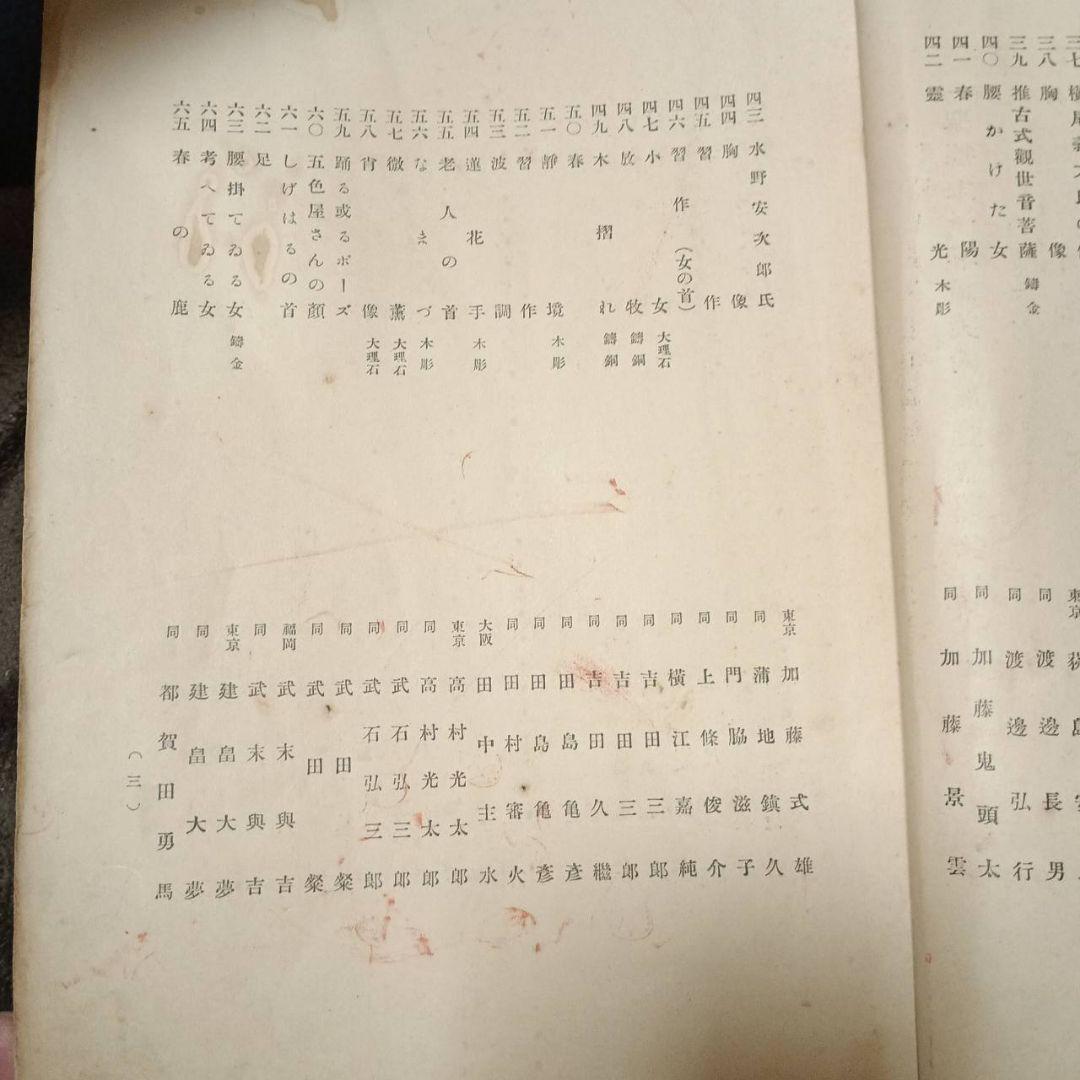 三八 胸像 東京
三九 推古式觀世音菩薩 鑄金 同 渡邊長男
四〇 腰かけた女 同 渡邊弘行
四一 春陽 同 加藤鬼頭太
四二 靈光 木彫 同 加藤景雲
四三 水野安次郎氏 東京 加藤式雄
四四 胸像 同 蒲地鎮久
四五 習作 同 門脇滋子
四六 習作(女の首) 同 上條俊介
四七 小女 大理石 同 横江嘉純
四八 放牧 鑄銅 同 吉田三郎
四九 木摺れ 鑄銅 同 吉田三郎
五〇 春 同 吉田久繼
五一 靜境 木彫 同 田島亀彥
五二 習作 同 田島亀彥
五三 波調 同 田村審火
五四 蓮花手 木彫 大阪 田中主水
五五 老人の首 東京 高村光太郎
五六 なまづ 木彫 同 高村光太郎
五七 微薫 大理石 同 武石弘三郎
五八 宵像 大理石 同 武石弘三郎
五九 踊る或るポーズ 同 武田燦
六〇 五色屋さんの顔 同 武田燦
六一 しげはるの首 福岡 武末與吉
六二 足 同 武末與吉
六三 腰掛てゐる女 鑄金 東京 建畠大夢
六四 考へてゐる女 同 建畠大夢
六五 春の鹿 同 都賀田勇馬
(三)